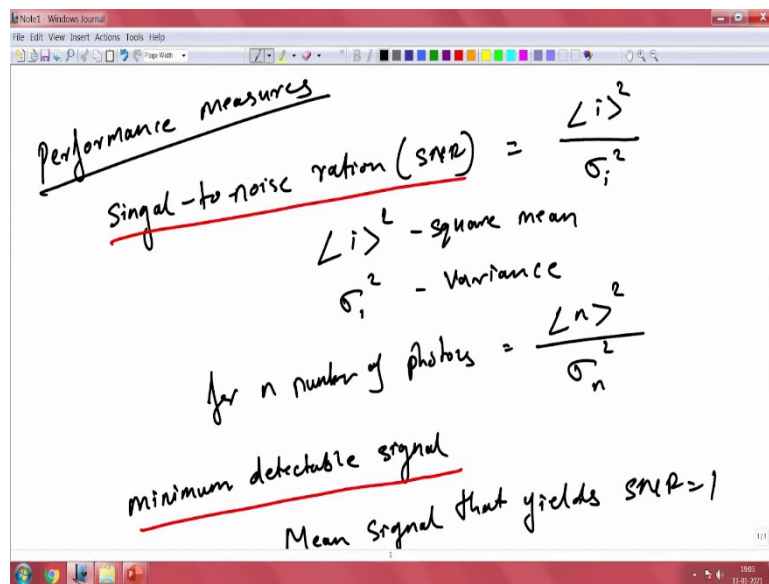 Note1 - Windows Journal
File Edit View Insert Actions Tools Help
Page Width
Performance measures
Singal-to-noise ration (SNR) = <i>² / σᵢ²
<i>² - square mean
σᵢ² - Variance
for n number of photons = <n>² / σₙ²
minimum detectable signal
Mean signal that yields SNR=1
1
1/1
19:03
11-01-2021